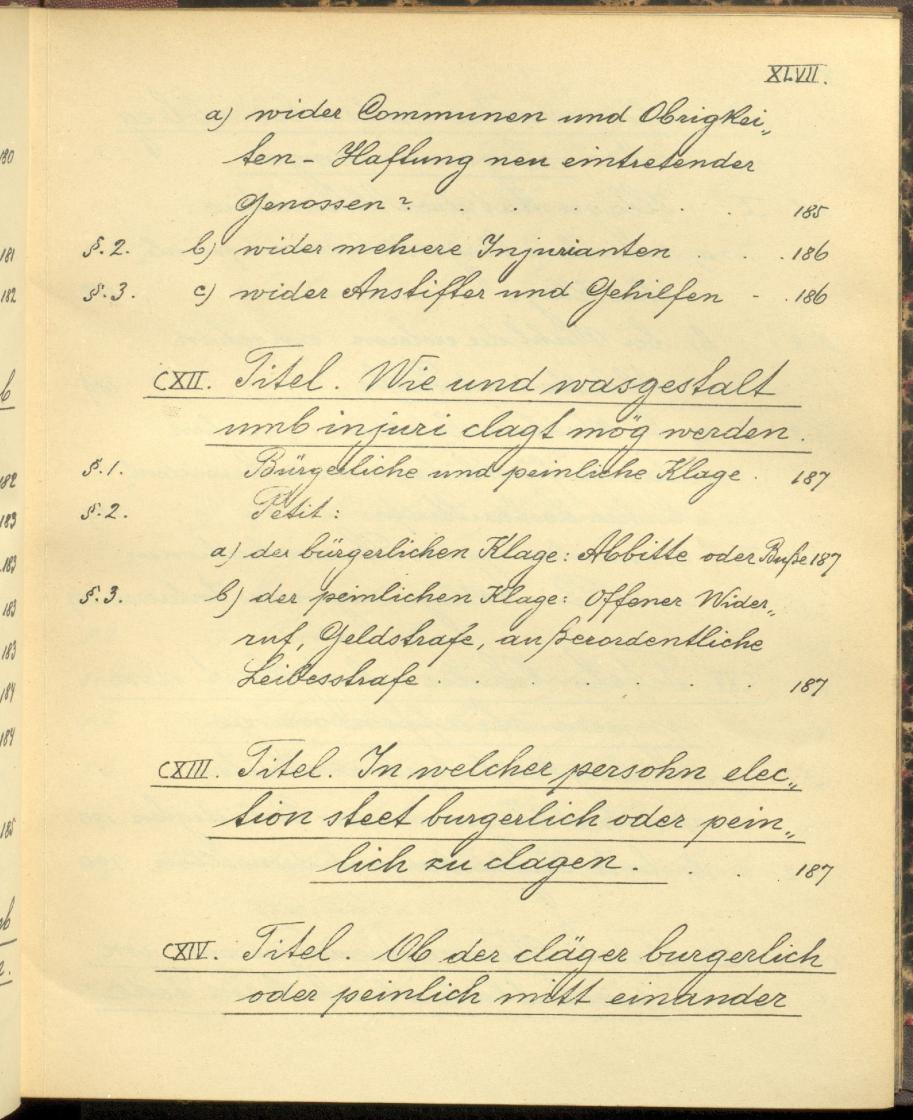 XLVII.
a) wider Communen und Obrigkei„
ten - Haftung neu eintretender
Genossen? . . . . . . 185
§. 2. b) wider mehrere Injurianten . . . 186
§. 3. c) wider Anstifter und Gehilfen - . 186
CXII. Titel. Wie und wasgestalt
umb injuri clagt mög werden.
§. 1. Bürgerliche und peinliche Klage . 187
§. 2. Petit:
a) der bürgerlichen Klage: Abbitte oder Buße 187
§. 3. b) der peinlichen Klage: Offener Wider„
ruf, Geldstrafe, außerordentliche
Leibesstrafe . . . . . . 187
CXIII. Titel. In welcher persohn elec„
tion steet burgerlich oder pein„
lich zu clagen. . . . 187
CXIV. Titel. Ob der cläger burgerlich
oder peinlich mitt einander
180
181
182
b
182
183
183
183
183
184
184
185